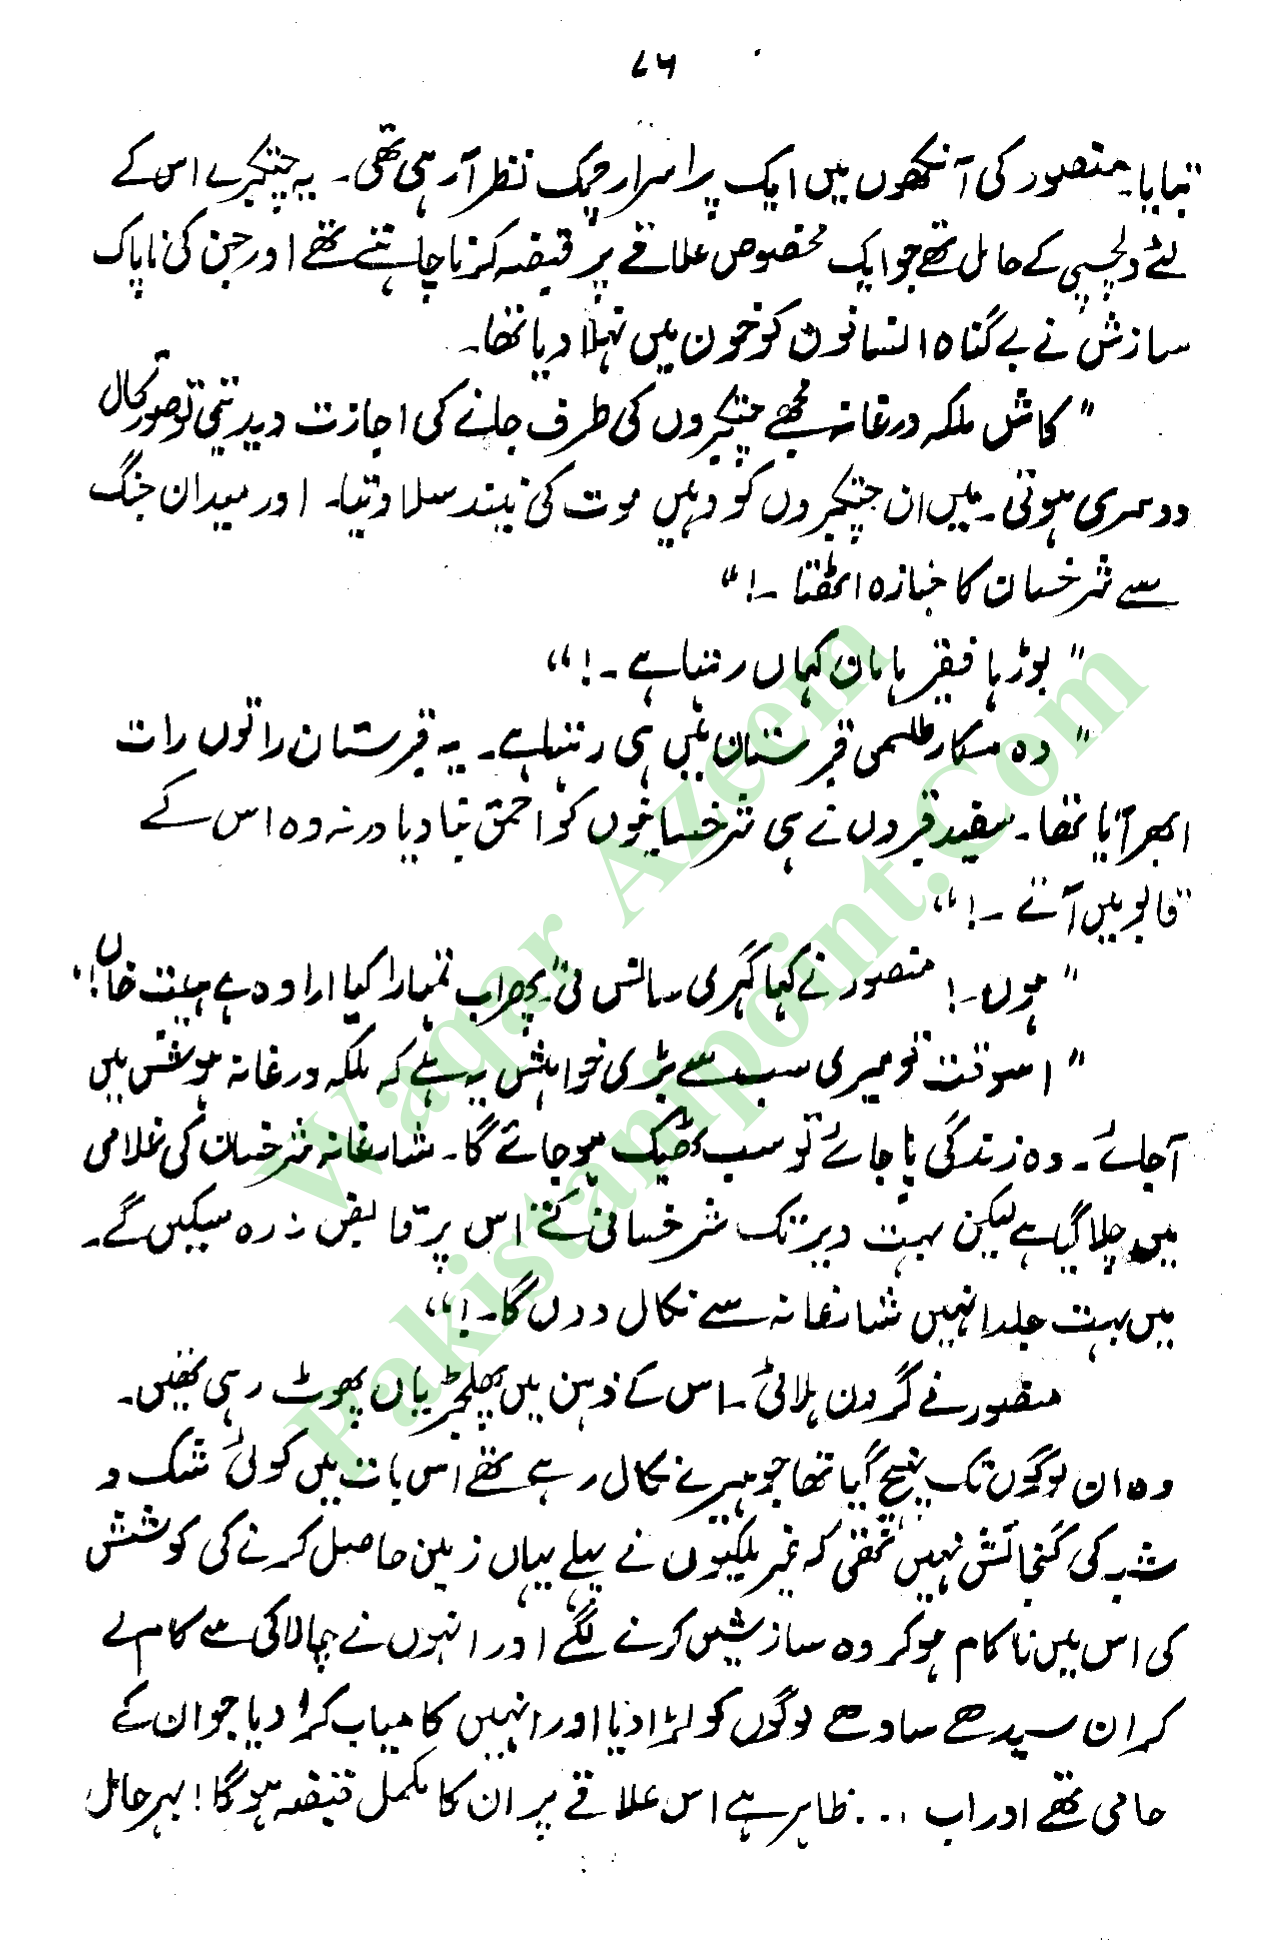 ۷۶
بتایا۔ منصور کی آنکھوں میں ایک پراسرار چمک نظر آرہی تھی۔ یہ چتکبرے اس کے
لئے دلچسپی کے حامل تھے جو ایک مخصوص علاقے پر قبضہ کرنا چاہتے تھے اور جن کی ناپاک
سازش نے بے گناہ انسانوں کو خون میں نہلا دیا تھا۔
"کاش ملکہ درغانہ مجھے چتکبروں کی طرف جانے کی اجازت دیدیتی تو صورتحال
دوسری ہوتی۔ میں ان چتکبروں کو وہیں موت کی نیند سلا دیتا۔ اور میدان جنگ
سے شرخسان کا جنازہ اٹھتا۔!"
"بوڑھا فقیر ہامان کہاں رہتا ہے۔!"
"وہ مکار طلسمی قبرستان میں ہی رہتا ہے۔ یہ قبرستان راتوں رات
ابھر آیا تھا۔ سفید قبروں نے ہی شرخسانیوں کو احمق بنا دیا ورنہ وہ اس کے
قابو میں آتے۔!"
"ہوں۔! منصور نے کہا گہری سانس لی "پھر اب تمہارا کیا ارادہ ہے ہیبت خاں!"
"اسوقت تو میری سب سے بڑی خواہش یہ ہے کہ ملکہ درغانہ ہوش میں
آجائے۔ وہ زندگی پا جائے تو سب ٹھیک ہو جائے گا۔ شارغانہ شرخسان کی غلامی
میں چلا گیا ہے لیکن بہت دیر تک شرخسانی کتے اس پر قابض نہ رہ سکیں گے۔
میں بہت جلد انہیں شارغانہ سے نکال دوں گا۔!"
منصور نے گردن ہلائی۔ اس کے ذہن میں پھلجھڑیاں پھوٹ رہی تھیں۔
وہ ان لوگوں تک پہنچ گیا تھا جو ہیرے نکال رہے تھے اس بات میں کوئی شک و
شبہ کی گنجائش نہیں تھی کہ غیر ملکیوں نے پہلے یہاں زمین حاصل کرنے کی کوشش
کی اس میں ناکام ہو کر وہ سازشیں کرنے لگے اور انہوں نے چالاکی سے کام لے
کر ان سیدھے سادھے لوگوں کو لڑا دیا اور انہیں کامیاب کرا دیا جو ان کے
حامی تھے اور اب ... ظاہر ہے اس علاقے پر ان کا مکمل قبضہ ہوگا! بہر حال
Waqar Azeem
Pakistanipoint.Com